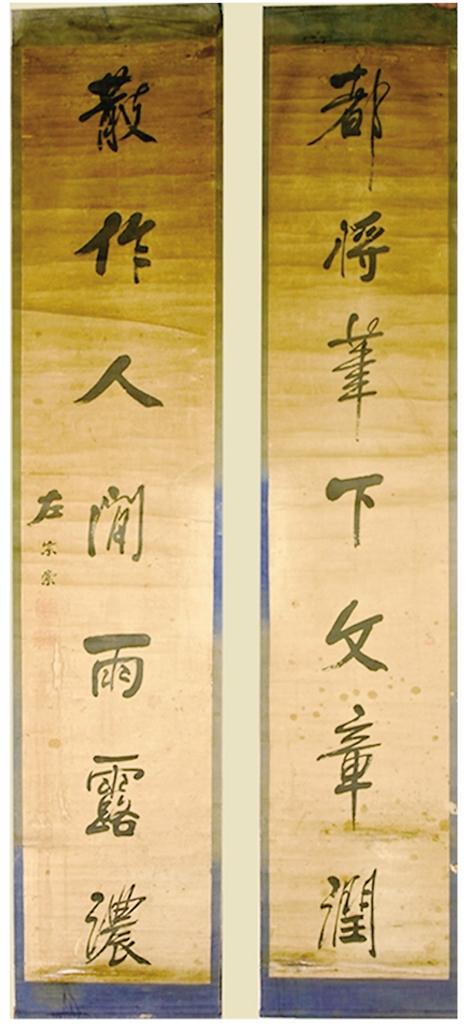 都將筆下文章潤
散作人間雨露濃
左宗棠